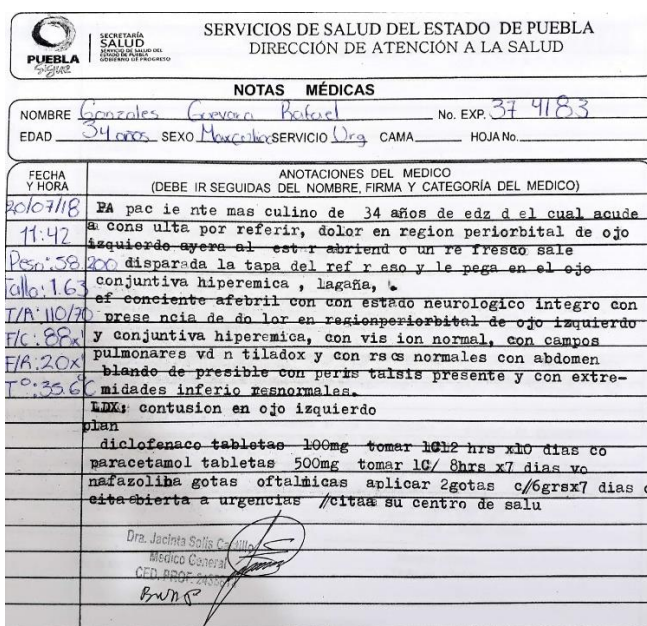 PUEBLA
SECRETARÍA
SALUD
SERVICIOS DE SALUD DEL
ESTADO DE PUEBLA
GOBIERNO DE PROGRESO
SERVICIOS DE SALUD DEL ESTADO DE PUEBLA
DIRECCIÓN DE ATENCIÓN A LA SALUD
NOTAS MÉDICAS
NOMBRE Gonzales Guevara Rafael No. EXP. 37 4183
EDAD 34 años SEXO Masculino SERVICIO Urg CAMA HOJA No.
FECHA Y HORA
ANOTACIONES DEL MEDICO
(DEBE IR SEGUIDAS DEL NOMBRE, FIRMA Y CATEGORÍA DEL MEDICO)
20/07/18 PA pac ie nte mas culino de 34 años de edz d el cual acude
11:42 a cons ulta por referir, dolor en region periorbital de ojo
izquierdo ayera al est r abriendo un re fresco sale
Peso: 58.200 disparada la tapa del ref r eso y le pega en el ojo
Talla: 1.63 conjuntiva hiperemica , lagaña,
ef conciente afebril con con estado neurologico integro con
T/A: 110/70 prese ncia de do lor en regionperiorbital de ojo izquierdo
F/C: 88x' y conjuntiva hiperemica, con vis ion normal, con campos
F/R: 20x' pulmonares vd n tiladox y con rscs normales con abdomen
blando de presible con peris talsis presente y con extre-
T°: 35.6C midades inferio resnormales.
LDX: contusion en ojo izquierdo
plan
diclofenaco tabletas 100mg tomar 1C12 hrs x10 dias co
paracetamol tabletas 500mg tomar 1C/ 8hrs x7 dias vo
nafazolina gotas oftalmicas aplicar 2gotas c/6grsx7 dias
cita abierta a urgencias /citaa su centro de salu
Dra. Jacinta Solis
Medico General
CED. PROF.